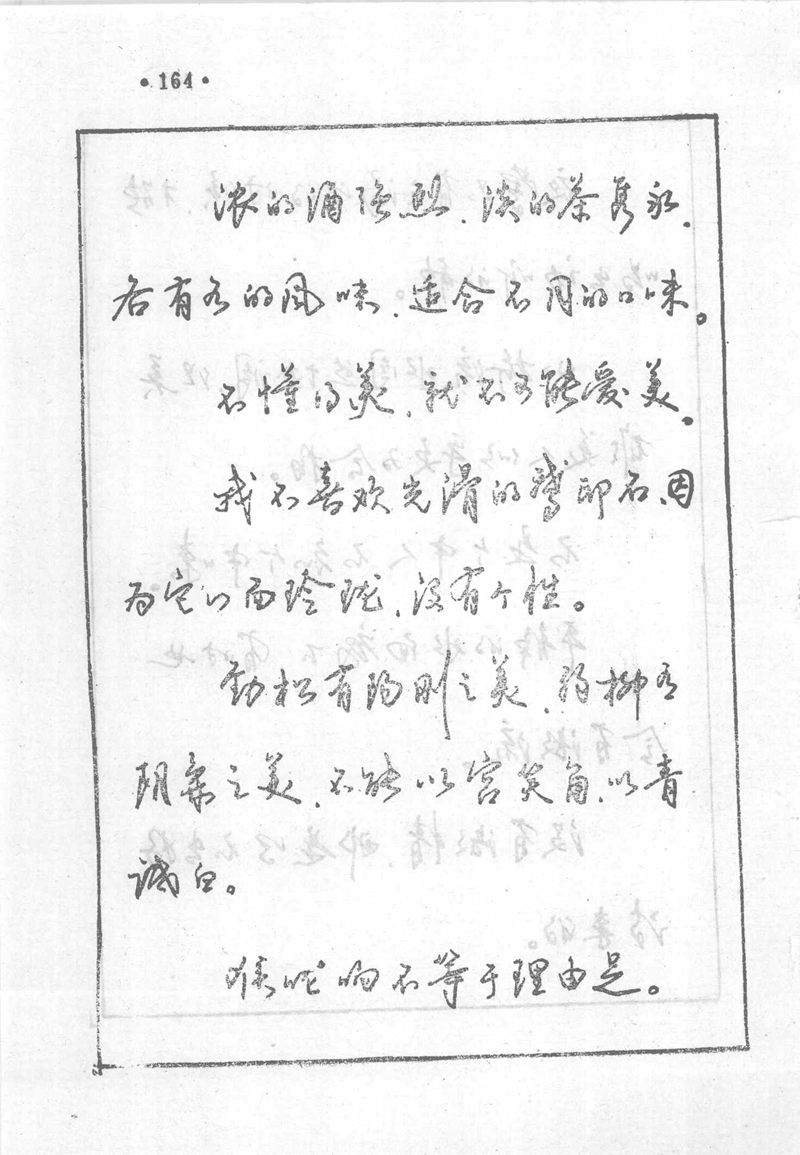 ·164·
浓的酒强烈，淡的茶隽永，
各有各的风味，适合不同的口味。
不懂得美，就不可能爱美。
我不喜欢光滑的鹅卵石，因
为它八面玲珑，没有个性。
劲松有阳刚之美，杨柳有
阴柔之美，不能以宫笑角，以青
诚白。
喉咙响不等于理由足。